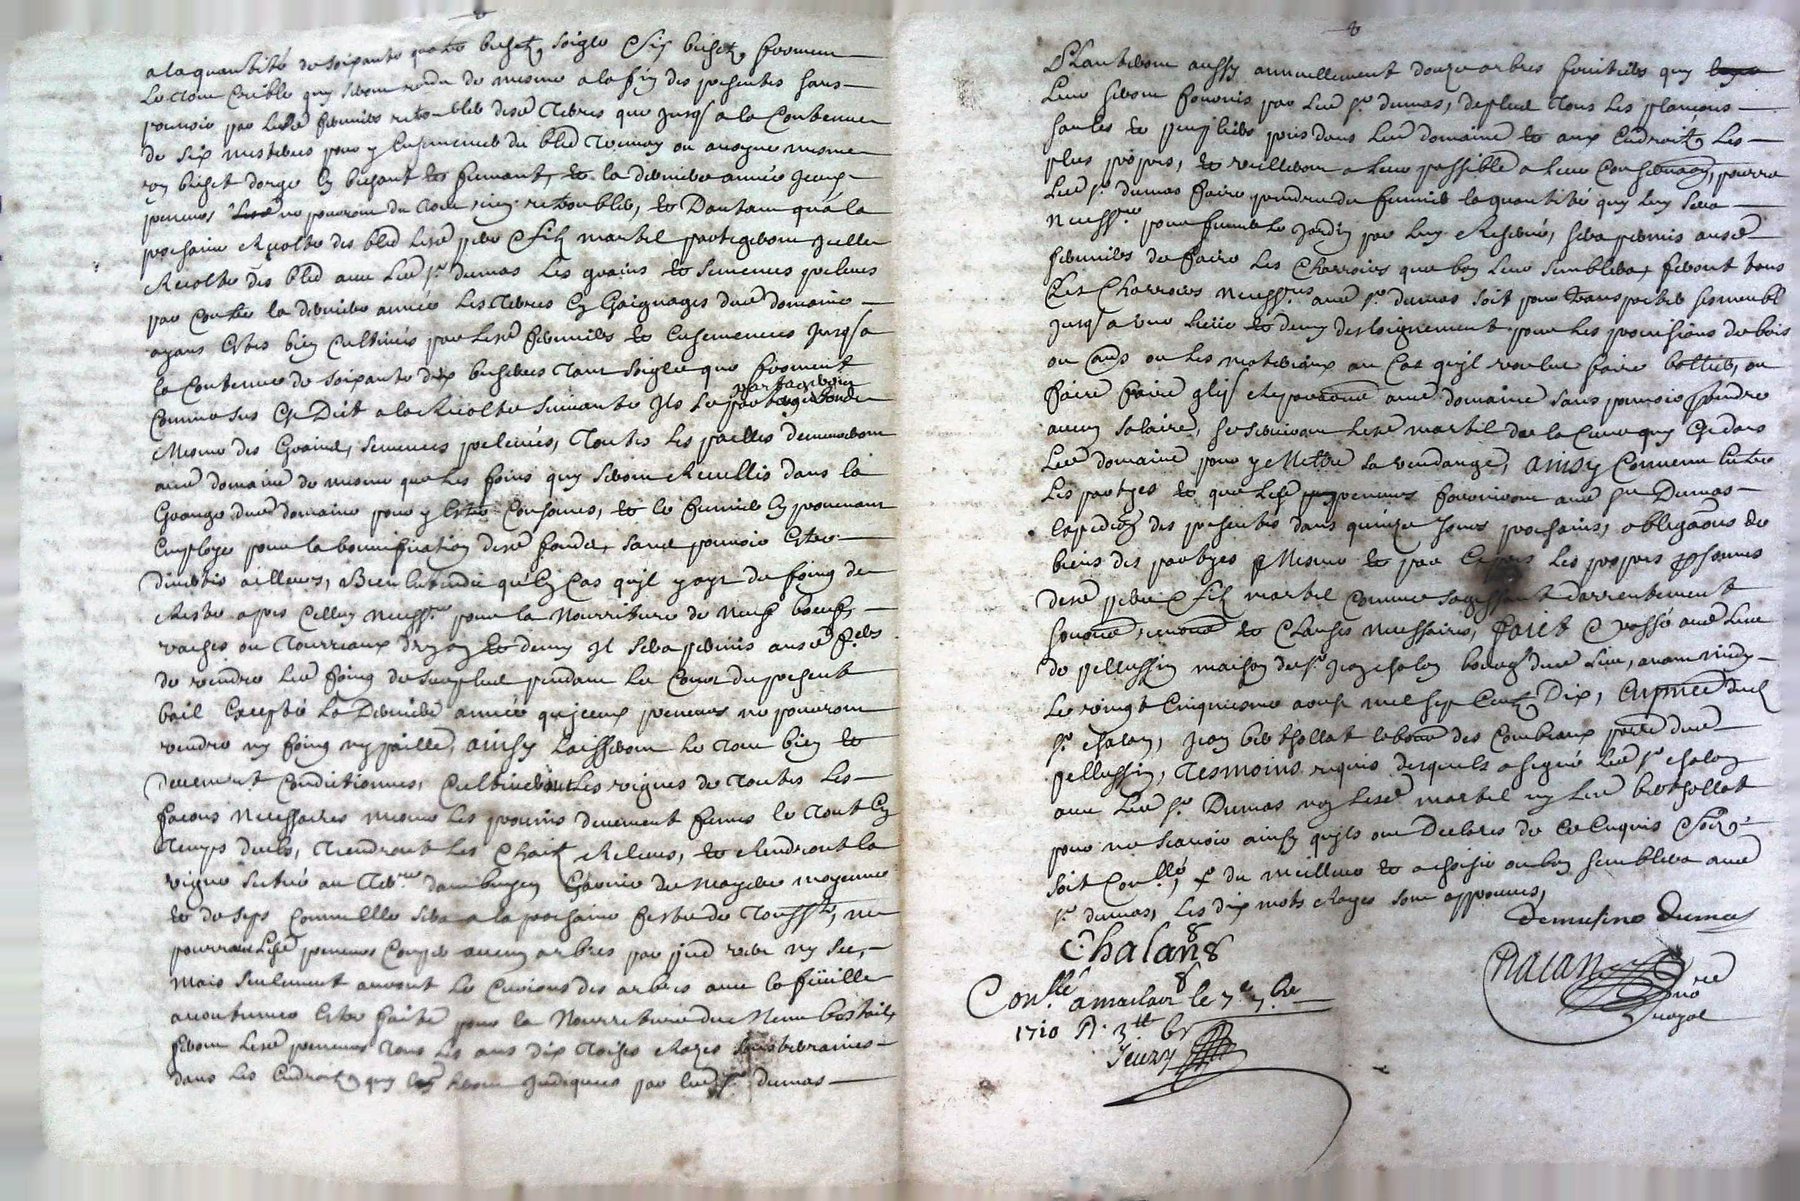 a la quantité de soixante quatre bichet soigle & six bichet froment
le tout crible quy seront rendu de mesme a la fin des presentes sans
pouvoir par lesd fermiers retoubler desd terres que jusqu a la contenue
de six mesteres pour y ensemencer du bled tremoy ou avoyne mesme
un bichet dorge en bechant et fumant, et la derniere année jceux
preneurs ne pourront du tout rien retoubler, et Dautant qua la
prochaine Recolte des bled lesd pere & fils martel partageront jcelle
Recolte des bled avec led sr dumas les grains et semences prelevés
par contre la derniere année les terres En Gaignages dud domaine
ayant estes bien cultivés par lesd fermiers et Ensemencés jusqu a
la Contenue de soixante dix bichets tant soigle que froment
Comme sus Est Dit a la Recolte suivante jls se partageront de
Mesme des Grains, semences prelevés, toutes les pailles demeureront
aud domaine de mesme que les foins quy seront Recullis dans la
Grange dud domaine pour y Estre Consomés, et le fumier En provenant
Employé pour la bonnification desd fonds, sans pouvoir Estre
divertis ailleurs, Bien Entendu qu'En Cas qu'jl y ayt du foing de
Reste apres celluy necessre pour la Nourriture de neuf boeufs,
vaches ou Taurreaux dun an et demy jl sera permis ausd frs
de vendre led foing de surplus pendant le Cour du present
bail Excepté la Derniere année qu jceux preneurs ne pourront
vendre ny foing ny paille, ainsy Laisseront le tout bien et
deuement Conditionnes, Cultiveront Les vignes de toutes les
facons Necessaires mesme les provins deuement fumes le tout En
temps deubs, tiendront les Chait Releves, et Rendront la
vigne scituée au terre Garnie de Mayere moyenne
et de seps Comme elle sera a la prochaine feste de toussts, ne
pourront Lesd preneurs Couper aucun arbres par pied vert ny sec,
mais seulement auront les environs des arbres avec la feüille
accoutumée Estre faite pour la Nourriture du Menu bestail,
feront lesd preneurs tous les ans dix toises Razes souterraines
dans les Endroits quy leur seront jndiqués par led sr dumas
Planteront aussy annuellement douze arbres fruitiers quy
Leur seront fournis par led sr dumas, deplus tous les plançons
saules et peupliers pris dans led domaine et aux Endroits les
plus propres, et veilleront a leur possible a leur Conservaon, pourra
led sr dumas faire prendre du fumier la quantité quy luy sera
Necessre pour fumer le jardin par luy Reservé, sera permis ausd
fermiers de faire les Charrois que bon leur semblera, feront tous
Les Charrois necessres aud sr dumas soit pour transporter ses meubl
jusqu a une lieüe et demy desloignement pour les provisions de bois
ou au Cas qu'jl voulut faire battir, ou
faire faire aud domaine sans pouvoir pretendre
aucun salaire, se serviront lesd martel de la Cuve quy Est dans
Led domaine pour y Mettre sa vendange, ainsy Convenu Entre
Les partyes et que lesd preneurs fourniront aud sr Dumas
Expedion des presentes dans quinze jours prochains, obligaons de
biens des partyes Mesme et par Expres les propres personnes
desd pere & fils martel comme sagissant darrentement
soumons, renons et Clauses necessaires, fait & passé aud Lieu
de pellussin maison de sr jean chalan bourgs dud Lieu, avant midy
Le vingt Cinquiesme aoust mil sept Cents Dix, En pnce dud
sr chalan, jean berthollat laboureur des Combeaux parre dud
pellussin, tesmoins requis desquels a signé led sr chalan
avec led sr Dumas ny lesd martel ny led berthollat
pour ne scavoir ainsy qujls ont Declarés de Ce Enquis & sera
soit Con.llé, du meilleur et a choisir ou bon semblera aud
sr dumas, les dix mots Rayes sont approuvés,
Demusino Dumas
Chalan
Con.llé a maclas le 7e 7bre
1710 R. 3 tt 6s